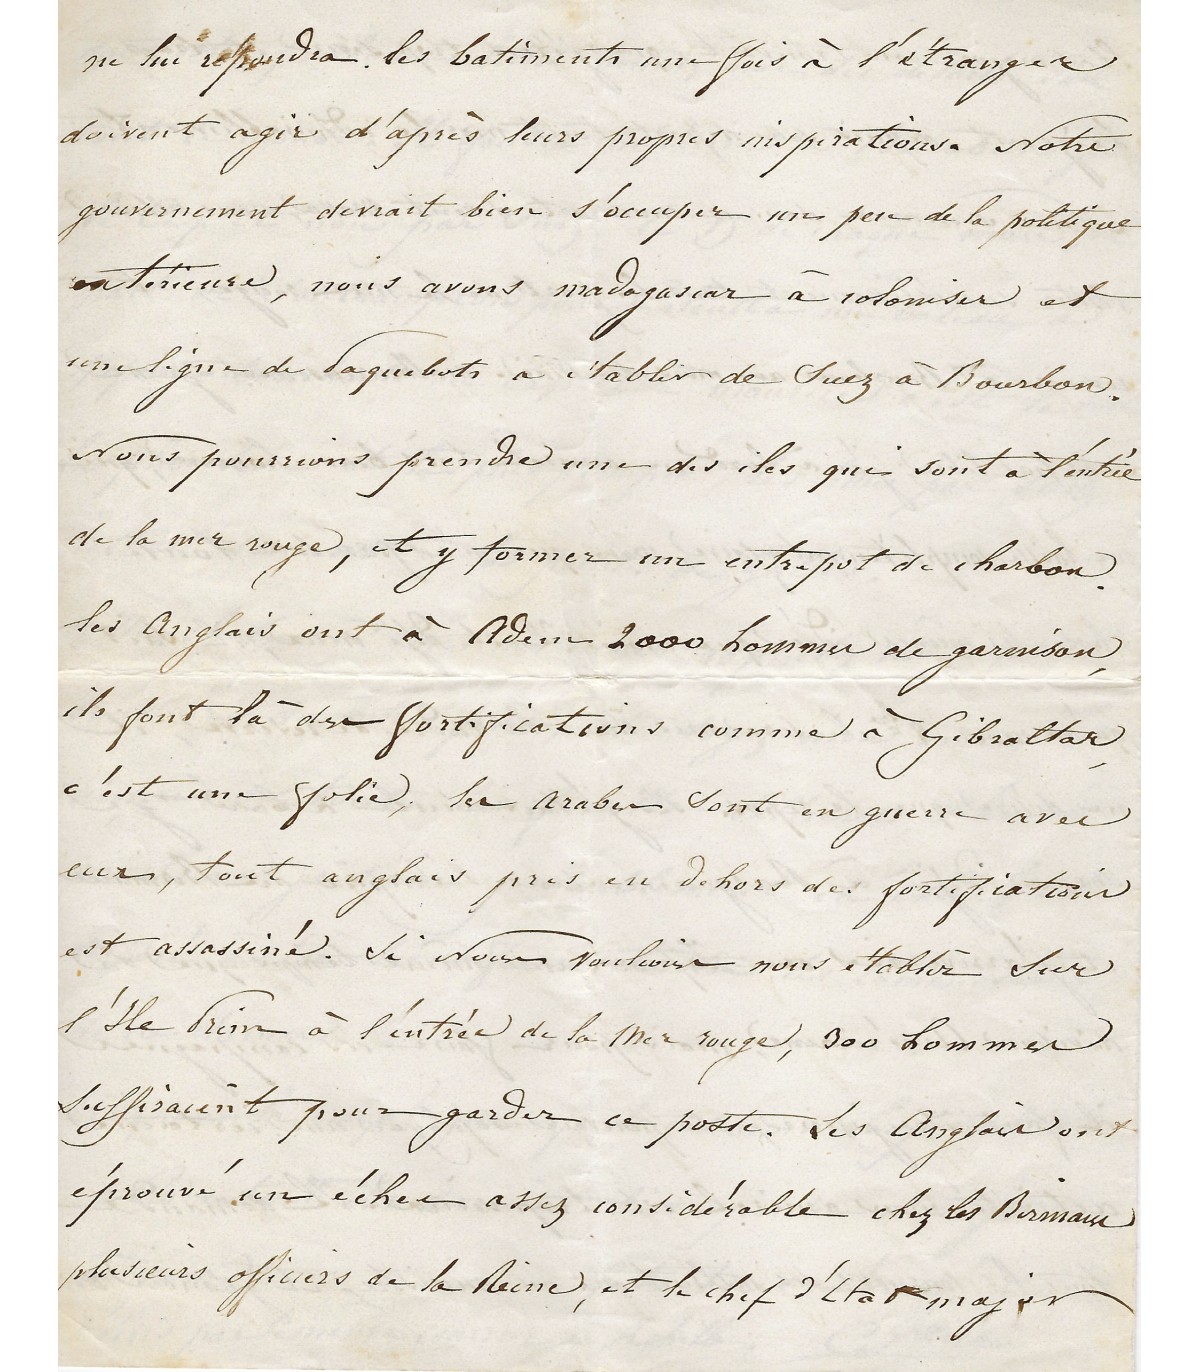 ne lui répondra. les batiments une fois à l'étranger
doivent agir d'après leurs propres inspirations. Notre
gouvernement devrait bien s'occuper un peu de la politique
extérieure, nous avons madagascar à coloniser et
une ligne de Paquebots a établir de Suez à Bourbon.
Nous pourrions prendre une des iles qui sont à l'éntrée
de la mer rouge, et y former un entrepot de charbon.
les Anglais ont à Aden 2000 hommes de garnison,
ils font là des fortifications comme à Gibraltar,
c'est une folie, les arabes sont en guerre avec
eux, tout anglais pris en dehors des fortifications
est assassiné. Si Nous voulions nous établir sur
l'Ile Prim à l'éntrée de la Mer rouge, 300 hommes
suffiraient pour garder ce poste. Les Anglais ont
éprouvé un échec assez considérable chez les Birmans
plusieurs officiers de la Reine, et le chef d'Etat major